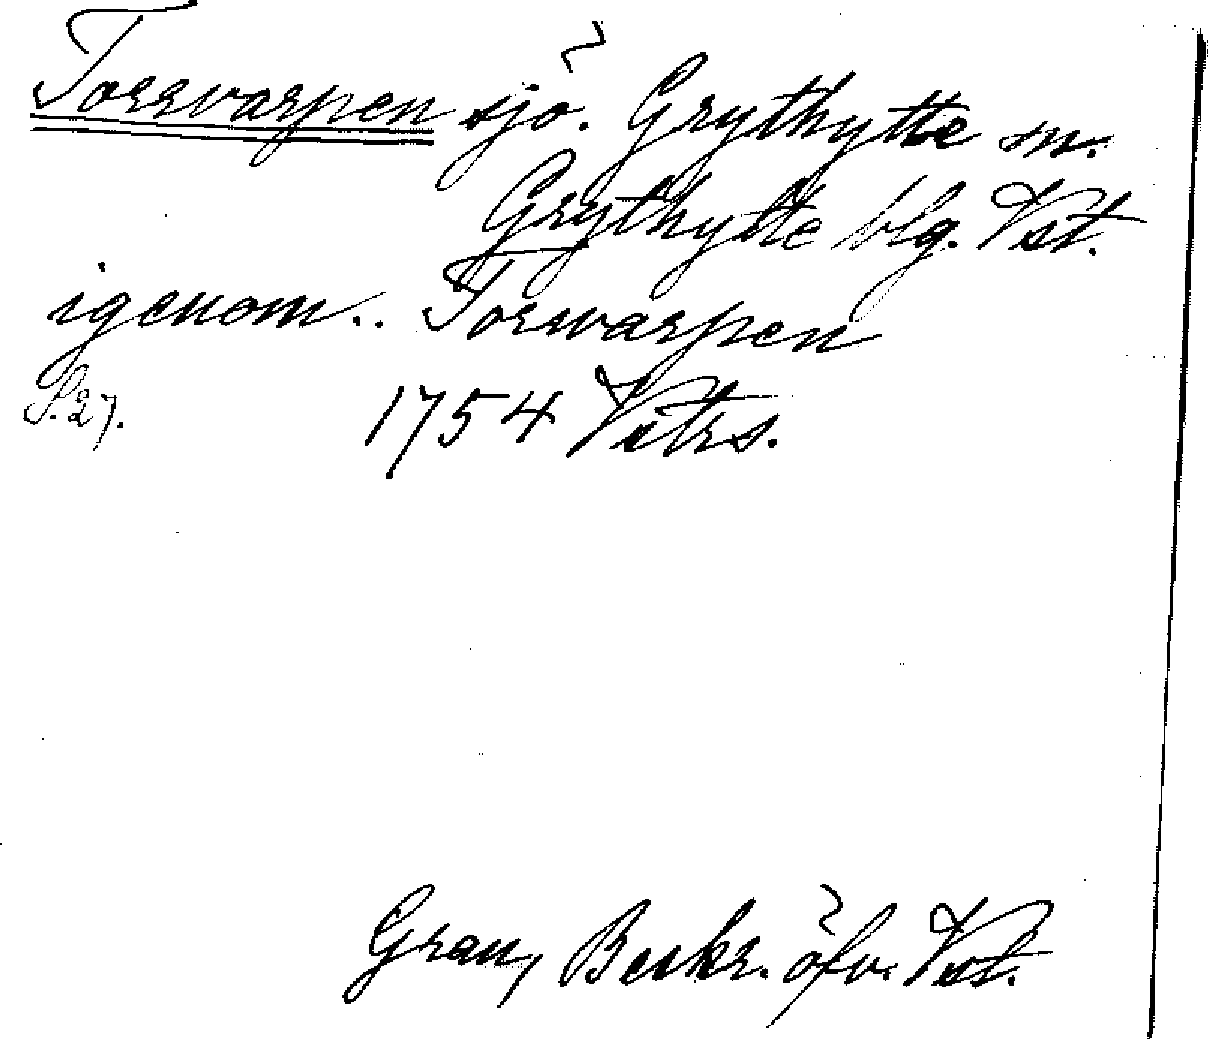 Torrvarpen sjö. Grythytte sn.
Grythytte blg. Vst.
igenom.. Torwarpen
S. 27. 1754 Vitrs.
Grau, Beskr. öfv. Vst.